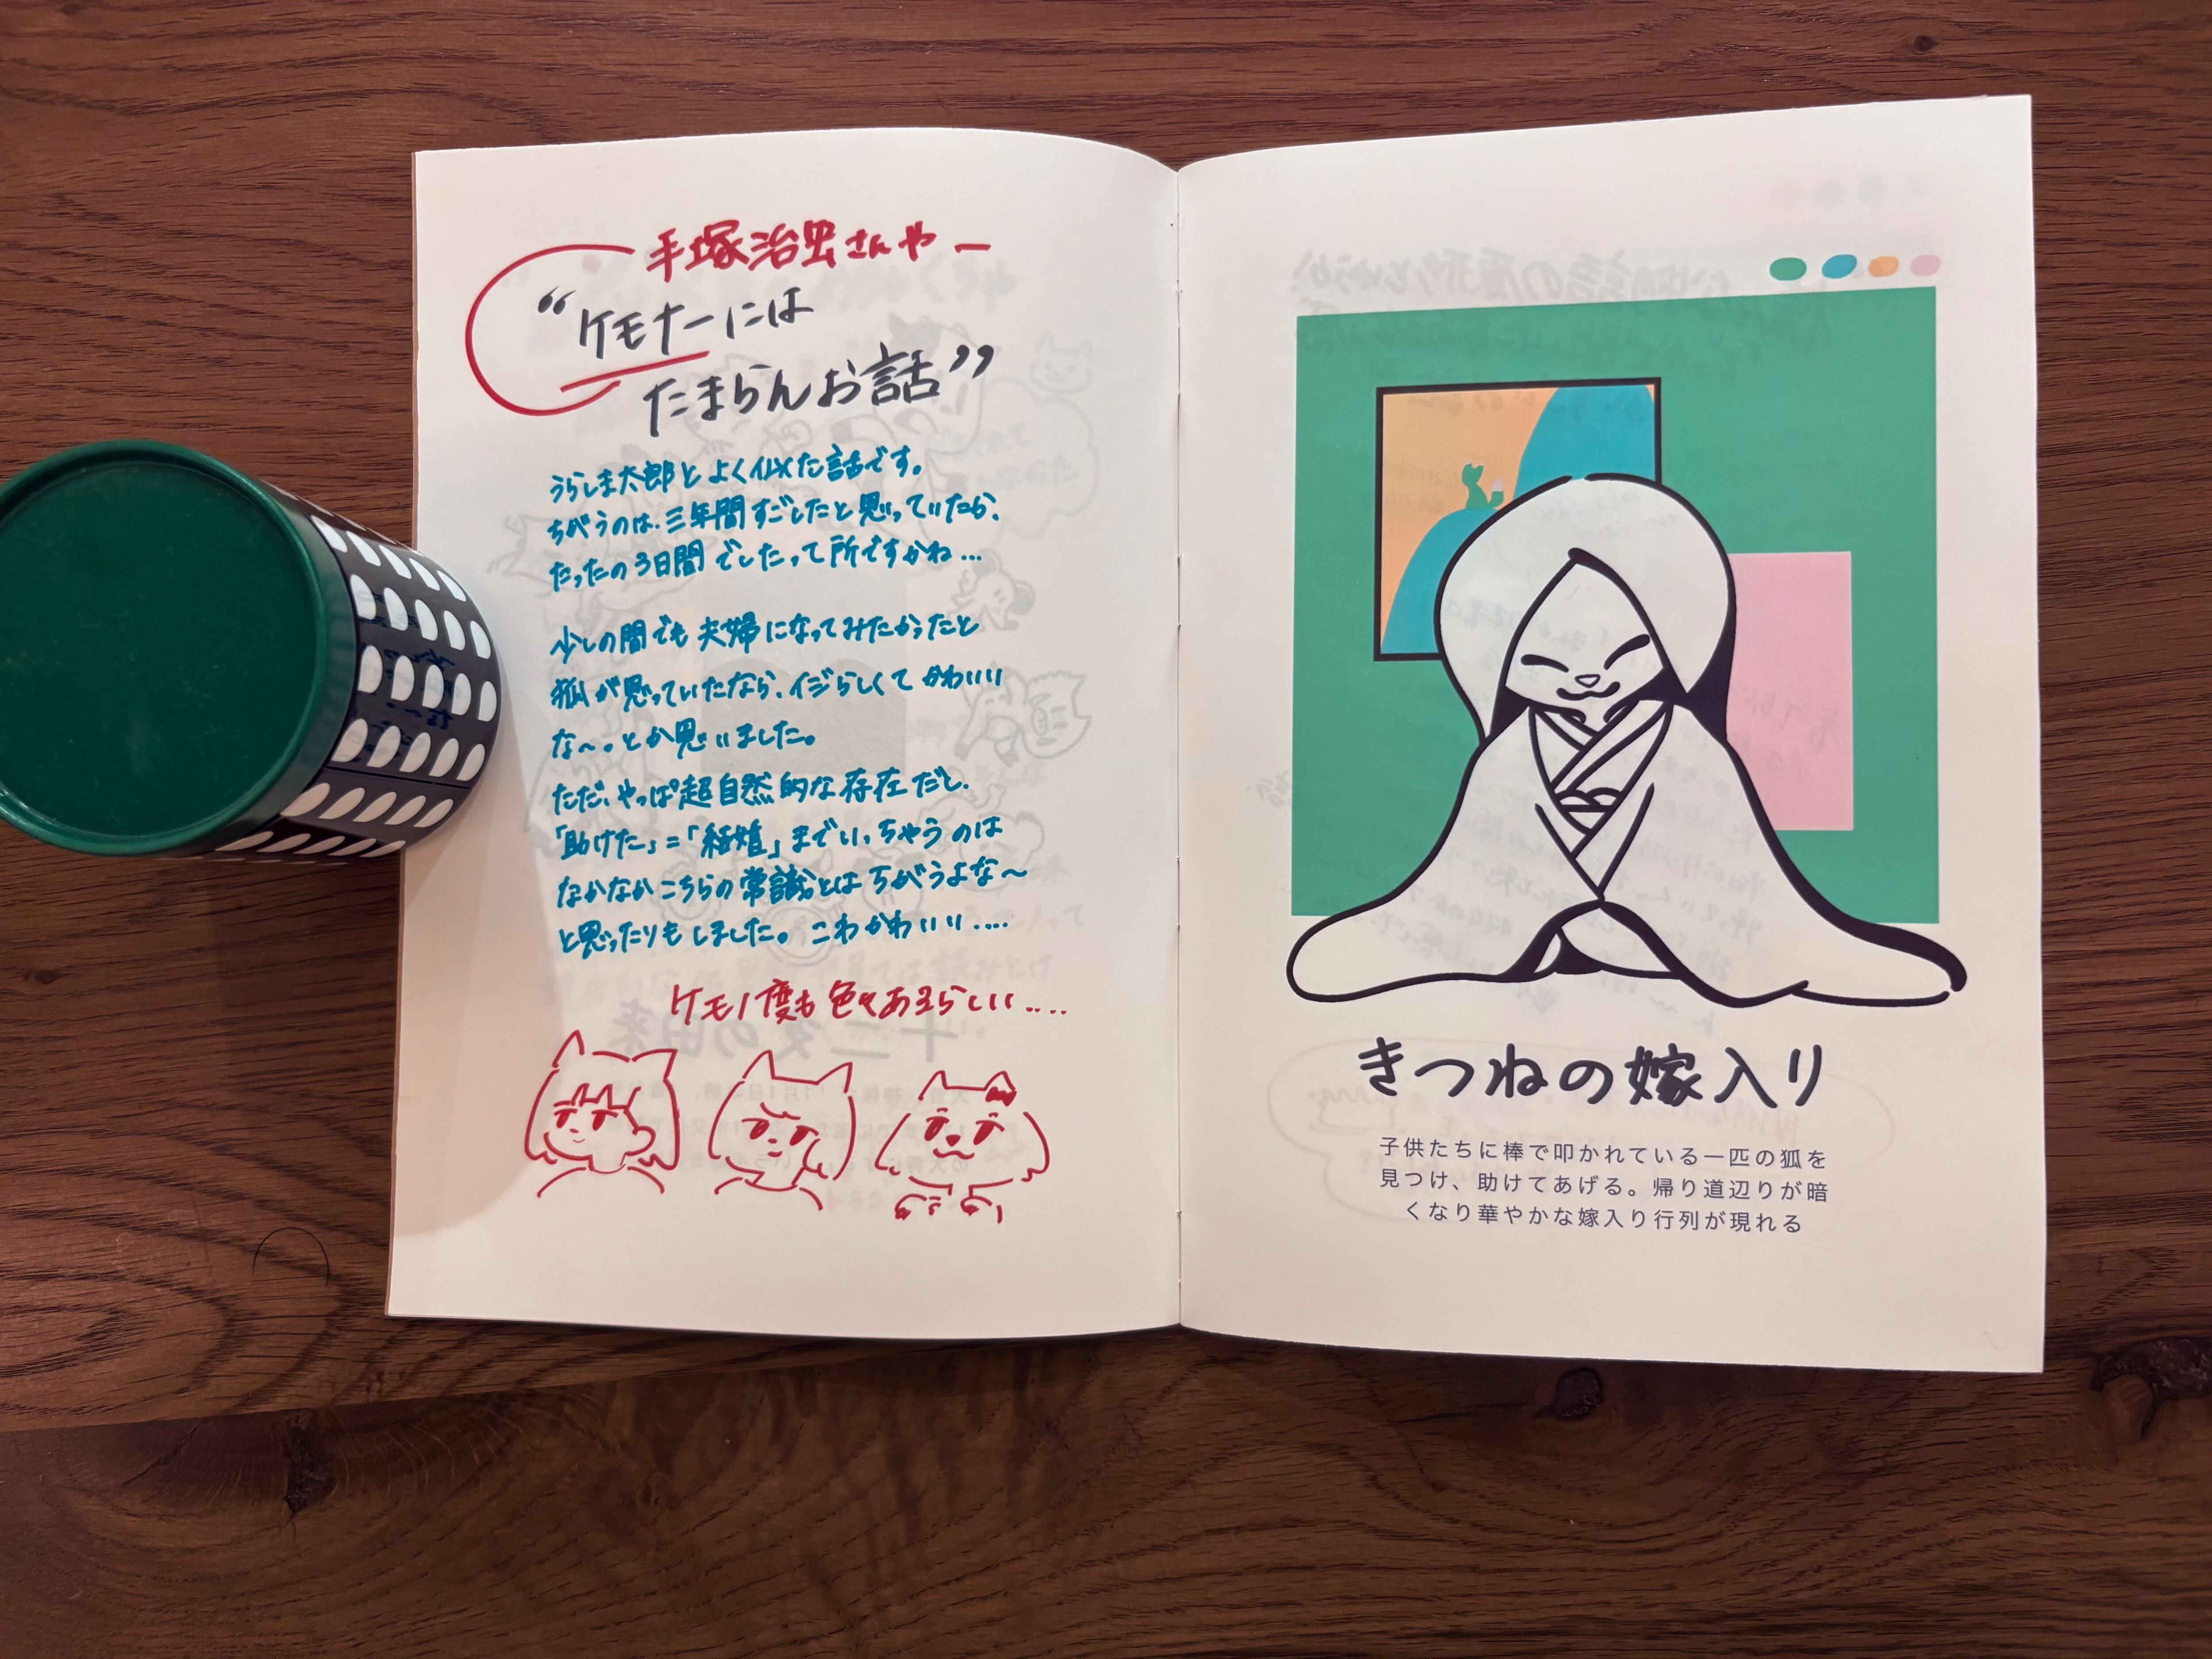 手塚治虫さんやー
“ケモナーには
たまらんお話”
うらしま太郎とよく似た話です。
ちがうのは、三年間すごしたと思っていたら、
たったの3日間でしたって所ですかね…
少しの間でも夫婦になってみたかったと
狐が思っていたなら、イジらしくてかわいい
な〜。とか思いました。
ただ、やっぱ超自然的な存在だし、
「助けた」=「結婚」までいっちゃうのは
なかなかこちらの常識とはちがうよな〜
と思ったりもしました。こわかわいい….
ケモノ度も色々あるらしい….
きつねの嫁入り
子供たちに棒で叩かれている一匹の狐を
見つけ、助けてあげる。帰り道辺りが暗
くなり華やかな嫁入り行列が現れる